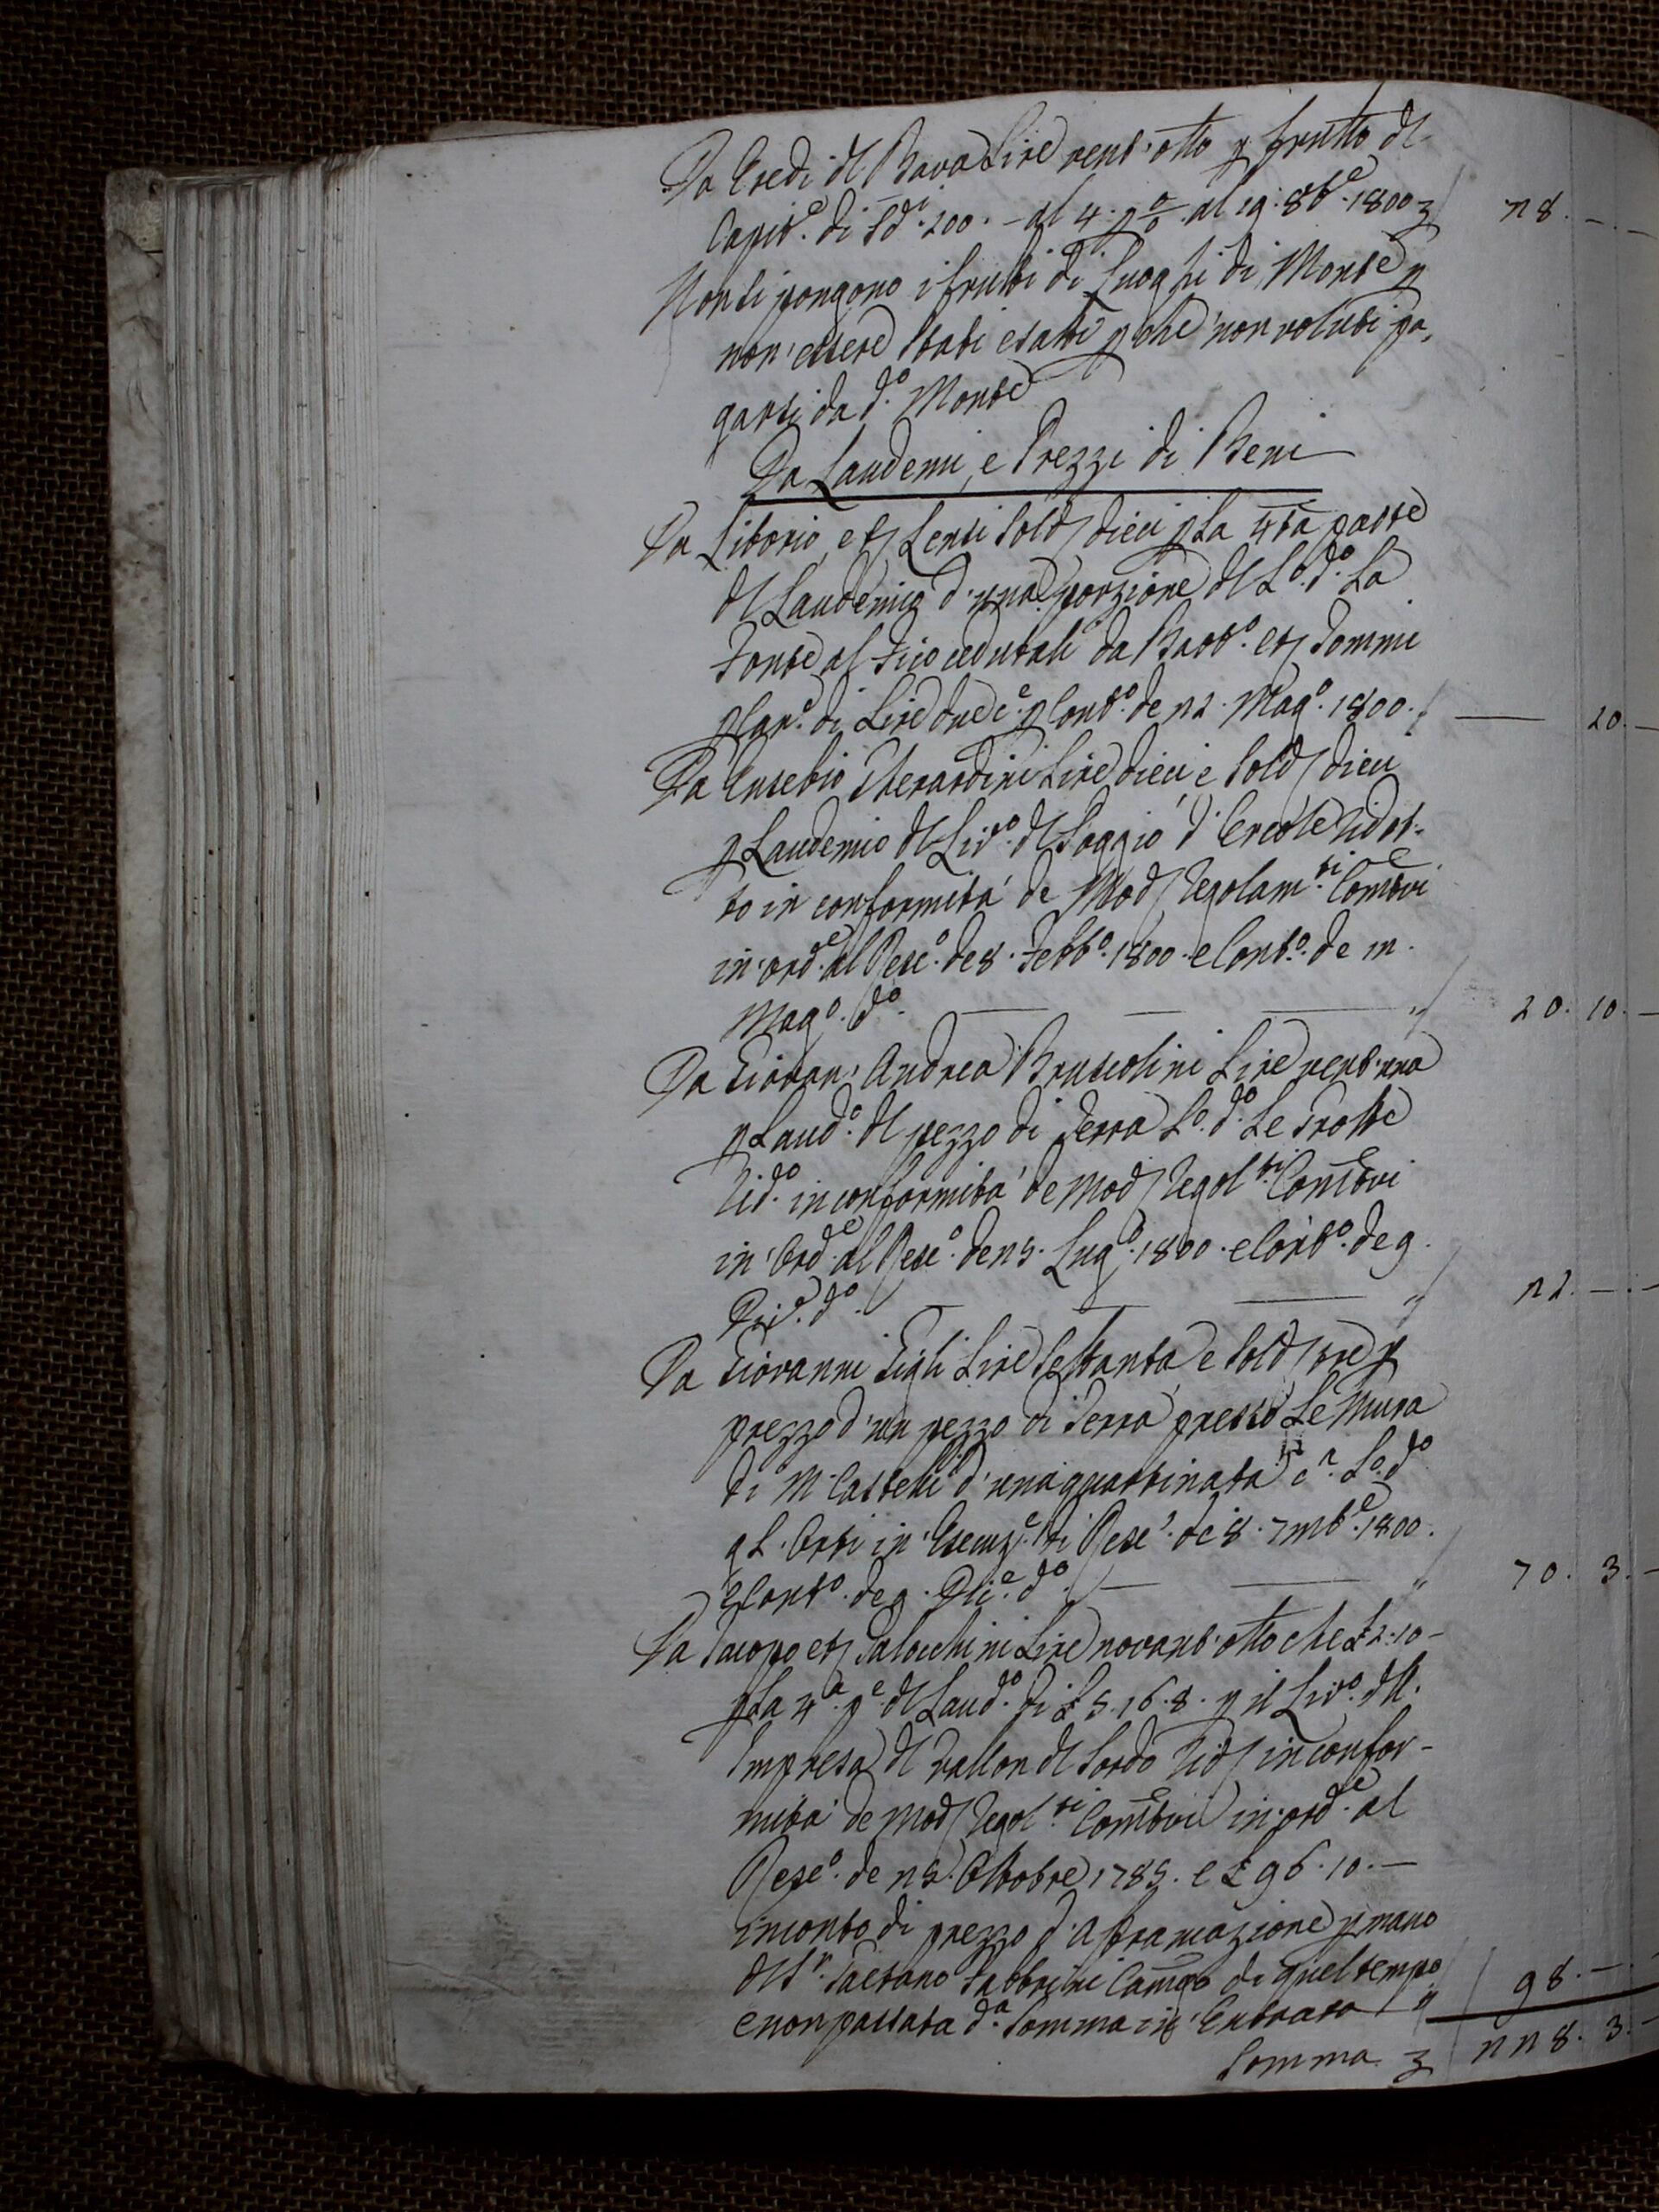 Da Eredi dl Bava Lire vent'otto p frutto dl
Capit.e di Sdi 200. – al 4. p % al 19. 8bre. 1800 28. – . –
Non si pongono i frutti di Luoghi di Monte p
non essere stati esatti p che non voluti pa,
garsi da do. Monte
Da Laudemi, e Prezzi di Beni
Da Liborio, e Lensi Sold dieci p La 4ta parte
dl Laudemio d'una porzione dl Lo. do. La
Fonte al Fico cedutali da Bartº. e Tommi
p Canº. di Lire due e p Contº. de 22. Magº. 1800. — 10. –
Da Eusebio Gherardini Lire dieci e Sold dieci
p Laudemio dl Livº. dl Poggio d'Ercole Ridot-
to in conformità de Mod Regolamti. Comtvi
in ord.e al Resº. de 8. Febbº. 1800. e Contº. de
Magº. do. 10. 10. –
Da Giovan' Andrea Bruscolini Lire vent'una
p Laudº. dl pezzo di Terra Lº. do. Le Prata
Ridº. in conformità de Mod Regolti. Comtvi
in Ord.e al Resº. de 25. Lugº. 1800. e Contº. de 9.
Dice. do. 21. – . –
Da Giovanni Gigli Lire Settanta, e Sold tre p
prezzo d'un pezzo di Terra presso Le Mura
di M. Castelli d'una quartinata ca. Lº. do.
gl'Orti in Esecuze. di Resº. de 8. 7mbre. 1800.
e Contº. de 9. Dice. do. 70. 3. –
Da Jacopo e Salocchini Lire novant'otto che £ 2. 10 –
p La 4a. pe. dl Laudº. di £ 5. 16. 8. p il Livº. dll'
Impresa dl Vallon dl Sordo Rid in confor-
mità de Mod Regolti. Comtvi in ord.e al
Resº. de 25. Ottobre 1785. e £ 96. 10. –
in conto di prezzo d'Affrancazione p mano
dl Sr. Gaetano Fabbrini Camgo di quel tempo
e non passata da. Somma in Entrata 98. – .
Somma 228. 3. –